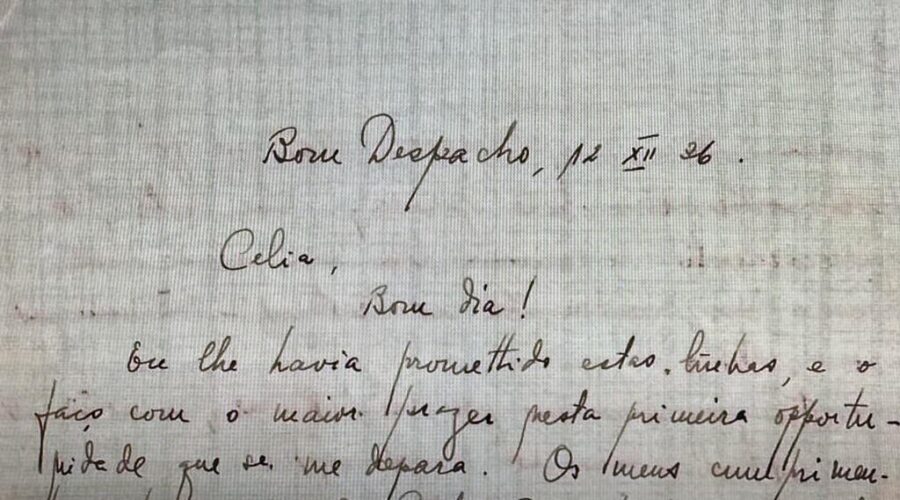 Bom Despacho, 12 XII 26.
Celia,
Bom dia!
Eu lhe havia promettido estas linhas, e o
faço com o maior prazer nesta primeira opportu-
nidade, que se me depara. Os meus cumprimen-